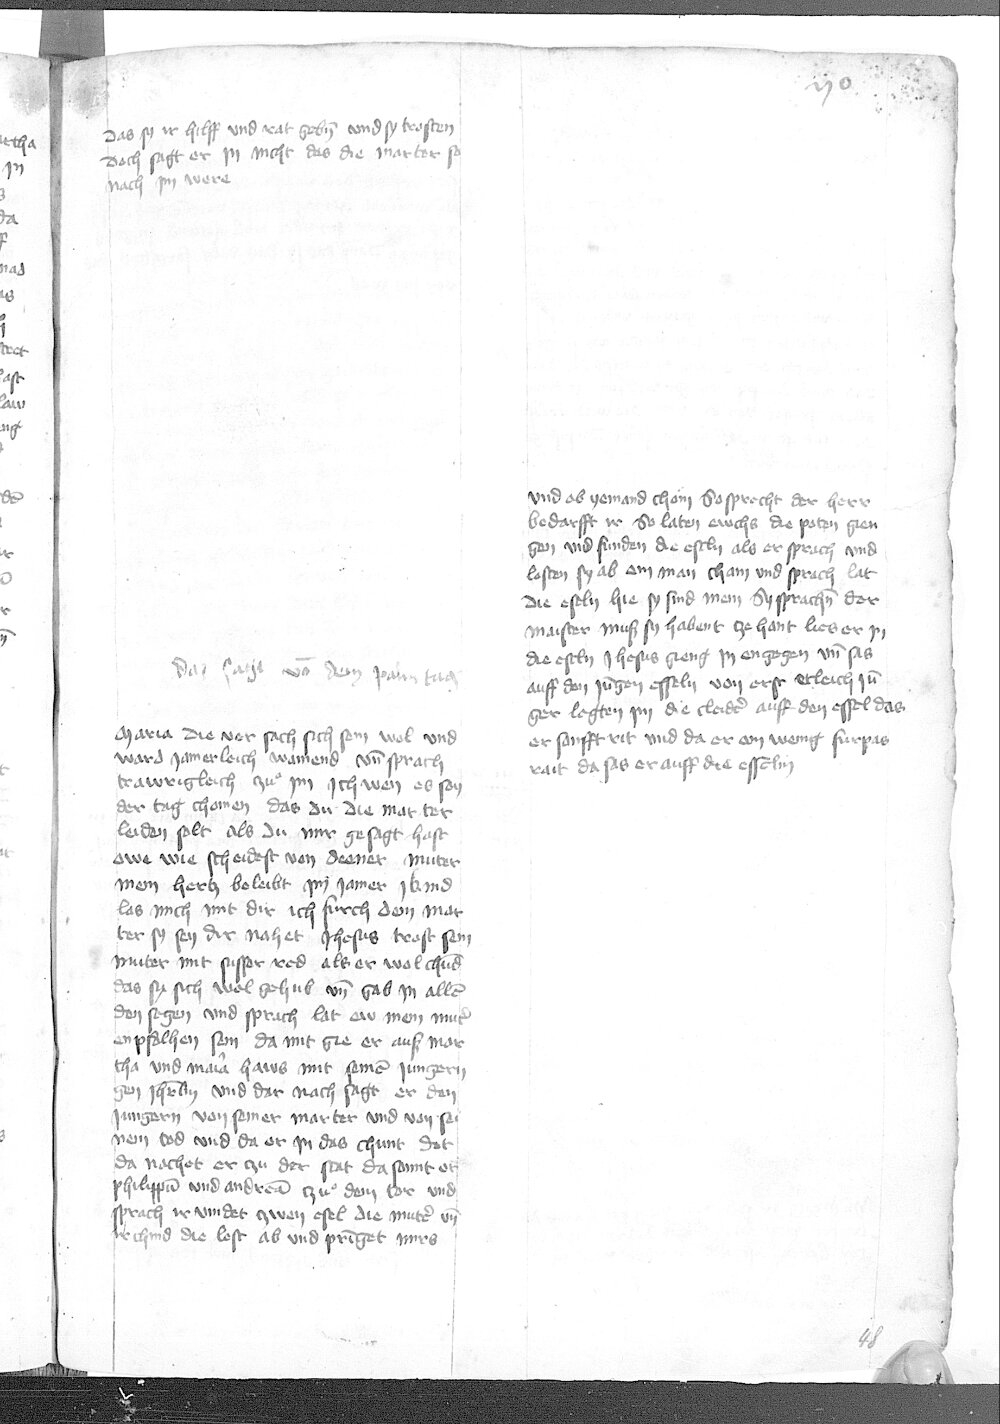 das sy ir hilff und rat gebn̄ und sy trosten
Doch sagt er in nicht das die marter so
nach im were
Das sagt vō dem palm tag
Maria die ver sach sich sein wol und
ward Jamerleich wainend vn̄ sprach
trawrigleich czu im Ich wen es sey
der tag chomen das du die mar ter
leiden solt als du mir gesagt hast
owe wie scheidest von deener muter
mein hercz beleibt im Jamer
las mich mit dir ich furch dein mar
ter sy sey dir nahet Jhesus trost sein
muter mit susser red als er wol chūd
das sy sich wol gehub vn̄ gab in allē
den segen und sprach lat ew mein mutē
enpfolhen sein da mit gie er auß mar
tha und maīa haws mit seinē Jungern
gen und dar nach sagt er den
Jungern von seiner marter und von sei
nem tod und da er in das chunt det
da nachet er czu der stat da sannt er
philippū und andreā czu dem tor und
sprach ir vindet czwen esel die mutē vn̄
ir chind die lost ab und prīget mirs
und ob yemand chom So sprecht der herr
bedarfft ir So laten ewchs die poten gien
gen und funden die esseln als er sprach und
losten sy ab ein man cham und sprach lat
die eseln hie sy sind mein Sy sprachn̄ der
maister muß sy habent cze hant lies er in
die eseln Jhesus gieng in engegen vn̄ sas
auff den Jūgen esseln von erst etleich Jū
ger legten im die cleidē auff den essel das
er sanfft rit und da er ein wenig furpas
rait da sas er auff die esselin
48